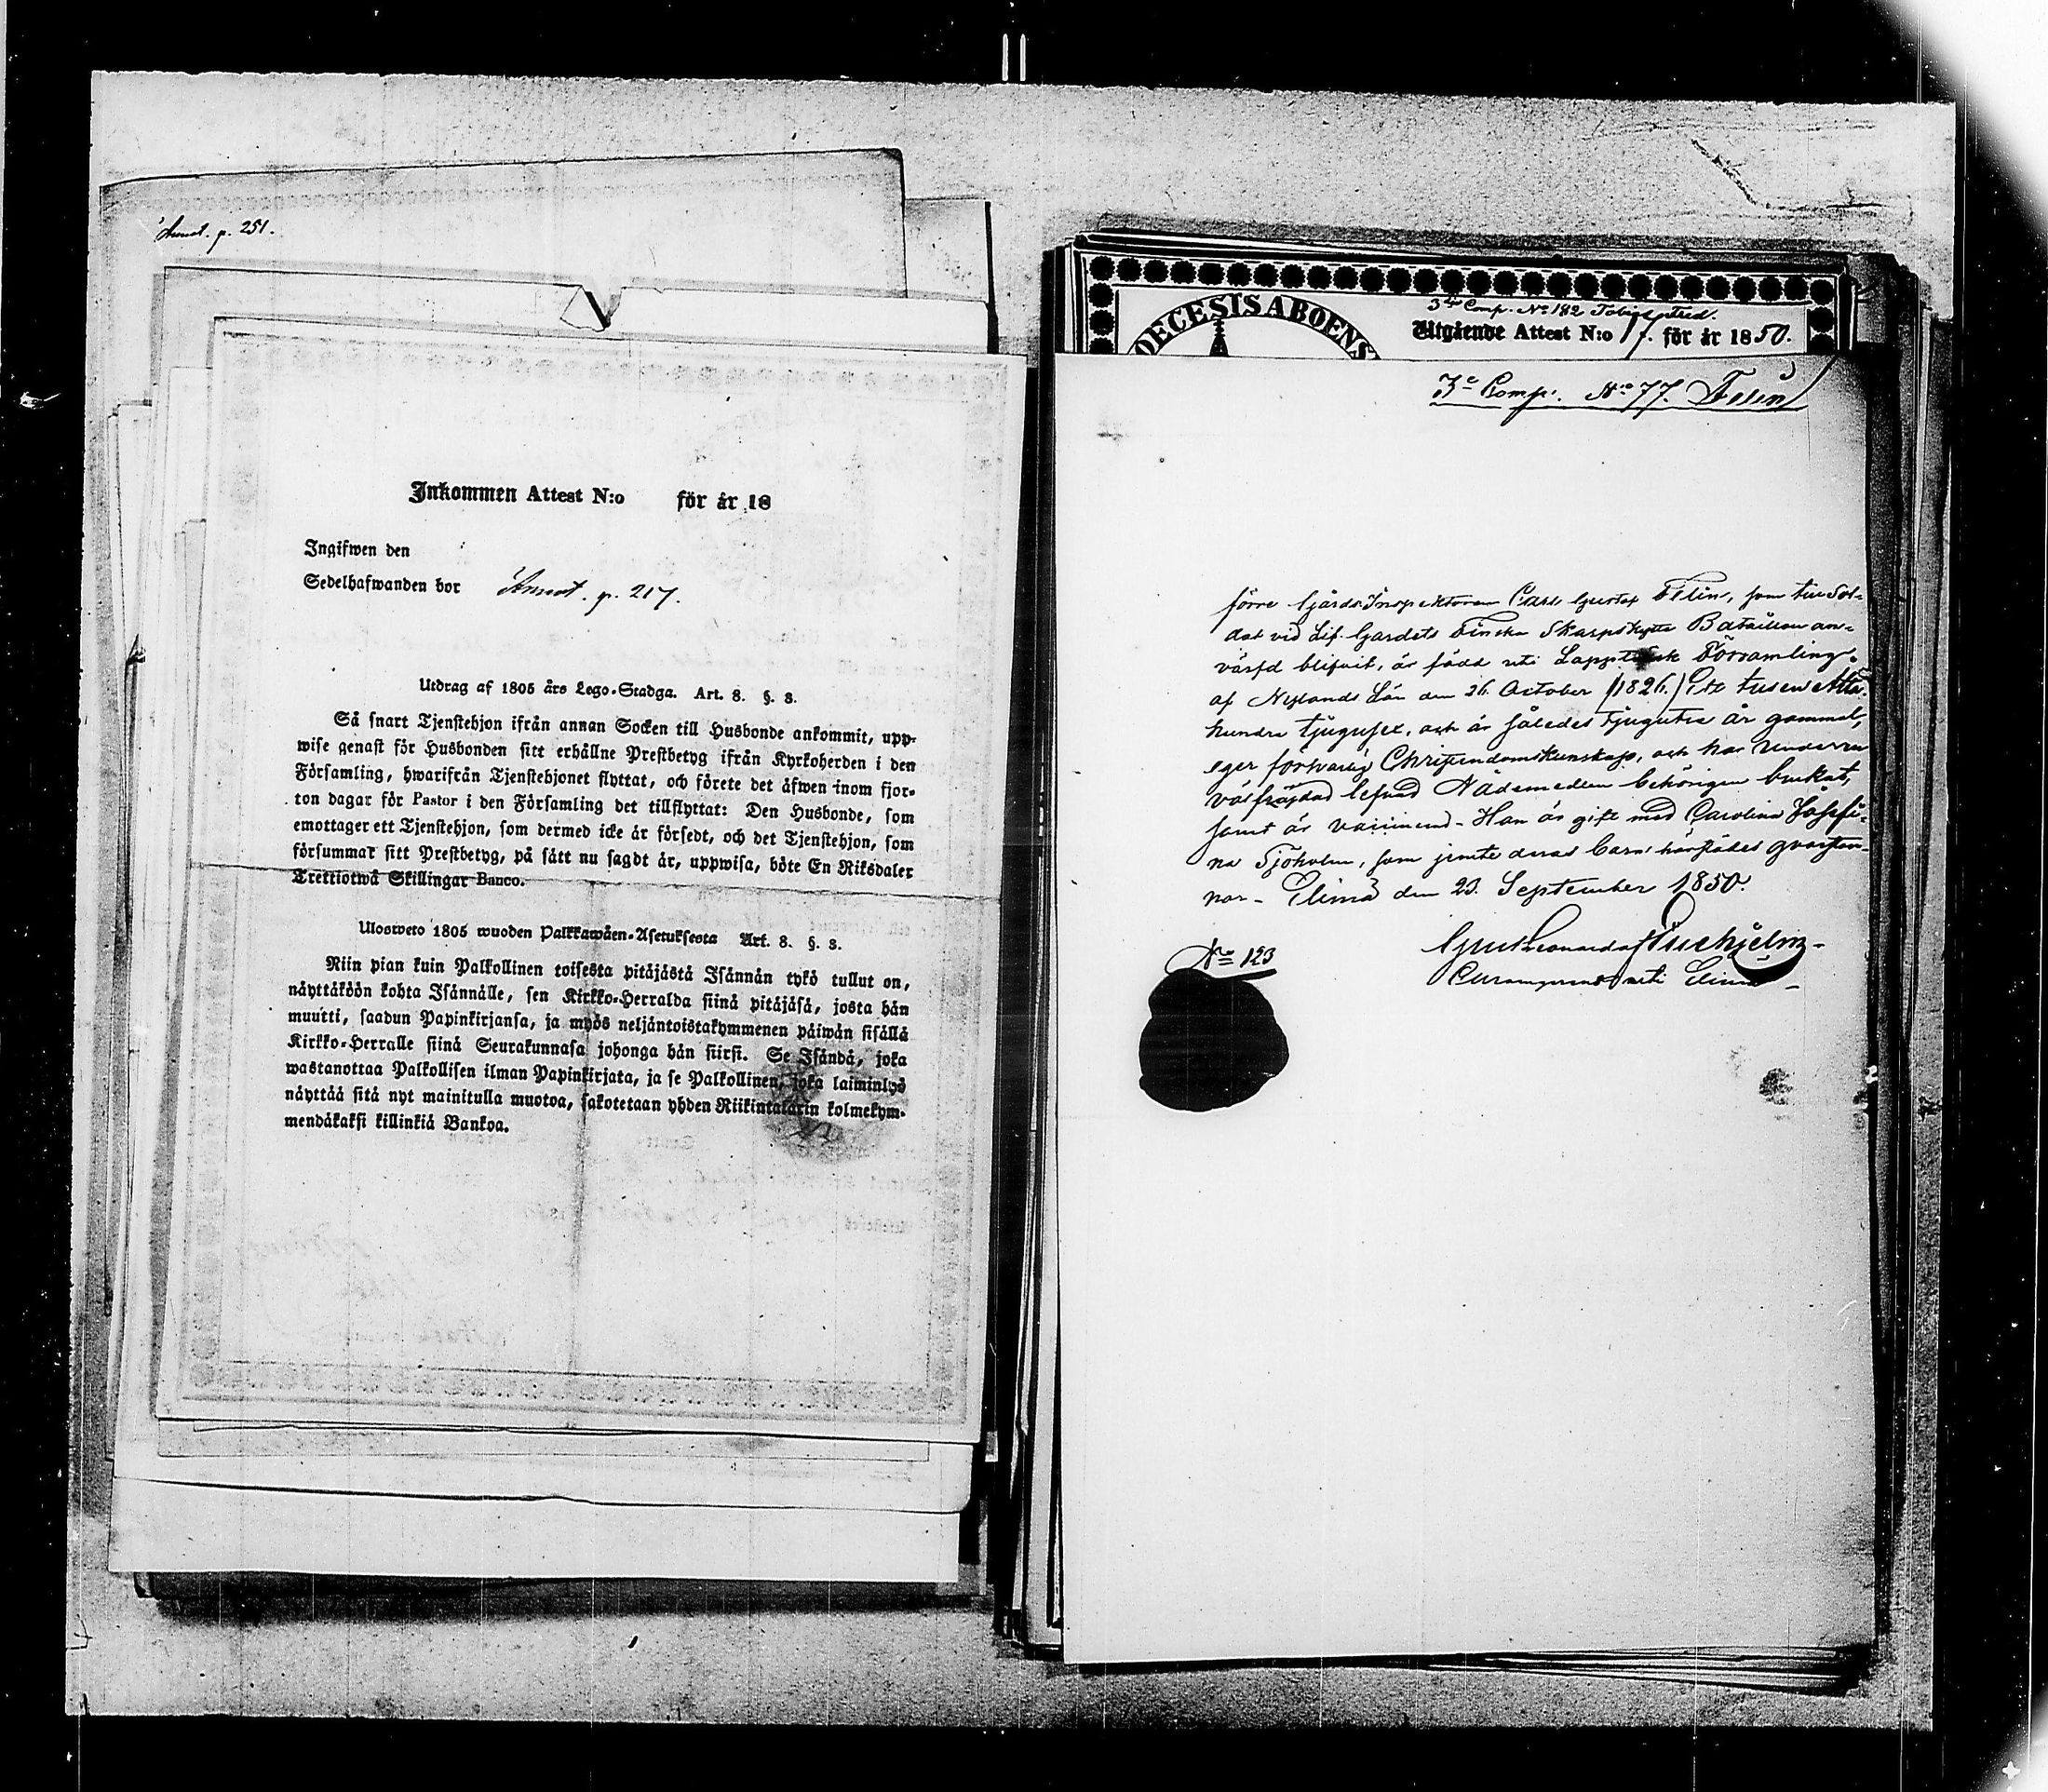 Annot. p. 251.
Inkommen Attest N:o för år 18
Ingifwen den
Sedelhafwanden bor Annot. p. 217.
Utdrag af 1805 års Lego-Stadga. Art. 8. §. 8.
Så snart Tjenstehjon ifrån annan Socken till Husbonde ankommit, upp-
wise genast för Husbonden sitt erhållne Prestbetyg ifrån Kyrkoherden i den
Församling, hwarifrån Tjenstehjonet flyttat, och förete det äfwen inom fjor-
ton dagar för Pastor i den Församling det tillflyttat: Den Husbonde, som
emottager ett Tjenstehjon, som dermed icke är försedt, och det Tjenstehjon, som
försummar sitt Prestbetyg, på sätt nu sagdt är, uppwisa, böte En Riksdaler
Trettiotwå Skillingar Banco.
Ulosweto 1805 wuoden Palkkawäen-Asetuksesta Art. 8. §. 8.
Niin pian kuin Palkollinen toisesta pitäjästä Isännän tykö tullut on,
näyttäköön kohta Isännälle, sen Kirkko-Herralda siinä pitäjäsä, josta hän
muutti, saadun Papinkirjansa, ja myös neljäntoistakymmenen päiwän sisällä
Kirkko-Herralle siinä Seurakunnasa johonga hän siirsi. Se Isändä, joka
wastanottaa Palkollisen ilman Papinkirjata, ja se Palkollinen, joka laiminlyö
näyttää sitä nyt mainitulla muotoa, sakotetaan yhden Riikintalarin kolmekym-
mendäkaksi killinkiä Bankoa.
DECESIS ABOENS
3dje Comp. No 182
Utgående Attest N:o 17. för år 1850.
3e Comp. No 77. Felin
förre Gårds Inspektoren Carl Gustaf Felin, som till Sol-
dat vid Lif Gardets Finska Skarpskytte Bataillon an-
värfd blifvit, är född uti Lappträsk Församling
af Nylands Län den 26 October (1826.) Ett tusen Åtta
hundra tjugusex, och är således tjugutre år gammal,
eger försvarlig Christendomskunskap, och har under en
välfräjdad lefnad Nådemedlen behörigen brukat,
samt är vaccinerad - Han är gift med Carolina Josefi-
na Sjöholm, som jemte deras barn härstädes qvarstan-
nar - Elimä den 23. September 1850.
No 123
uti Elimä -